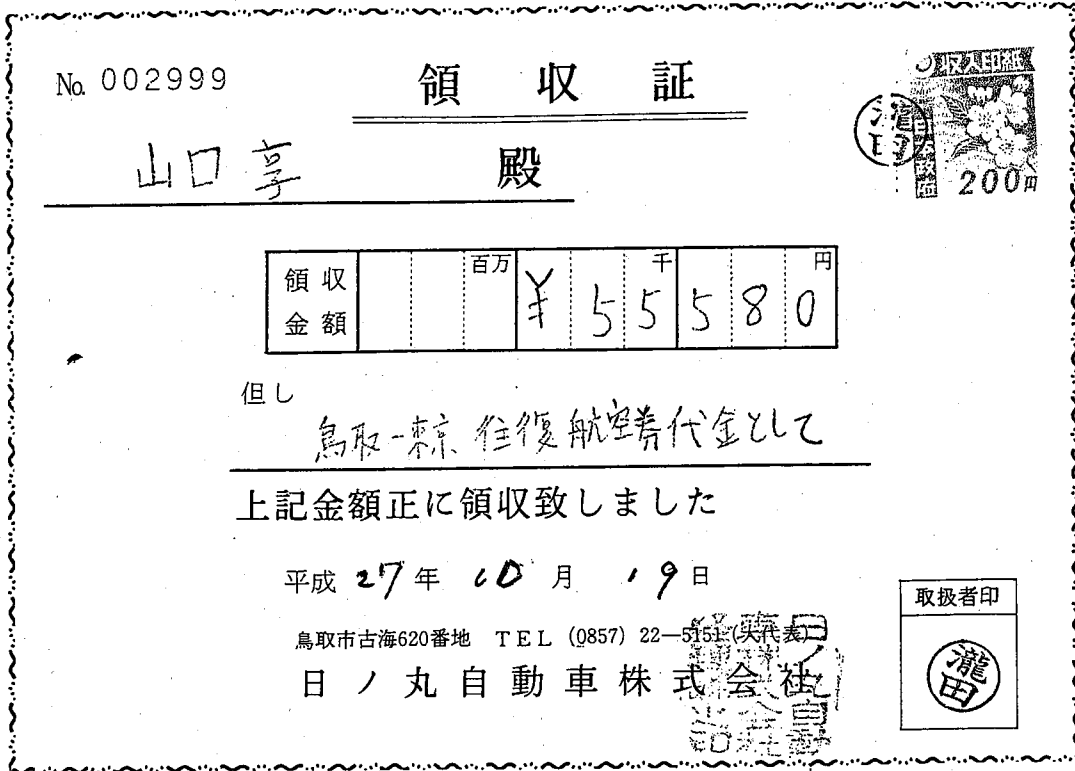 No. 002999
領収証
収入印紙
日本政府
200円
瀧田
山口 享 殿
領収金額 百万 千 円
¥55580
但し
鳥取-東京 往復航空券代金として
上記金額正に領収致しました
平成 27年 10月 19日
鳥取市古海620番地 TEL (0857) 22―5151 (大代表)
日ノ丸自動車株式会社
取扱者印
瀧田